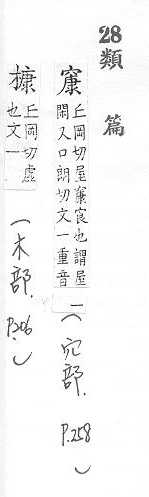 28 類篇
䆲 丘岡切屋䆲䆡也謂屋
閑又口朗切文一重音
一 (穴部. P.258)
槺 丘岡切虛
也文一 (木部. P.206.)